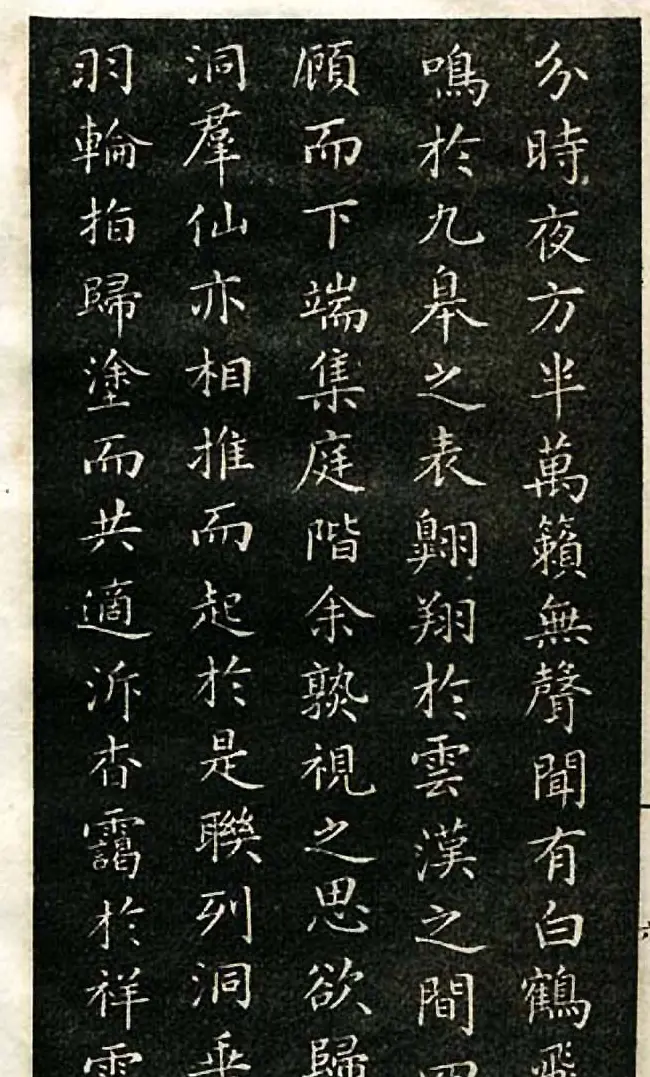 分時夜方半萬籟無聲聞有白鶴飛
鳴於九皋之表翺翔於雲漢之間四
顧而下端集庭階余孰視之思欲歸
洞羣仙亦相推而起於是聯列洞垂
羽輪指歸塗而共適泝杳靄於祥雲